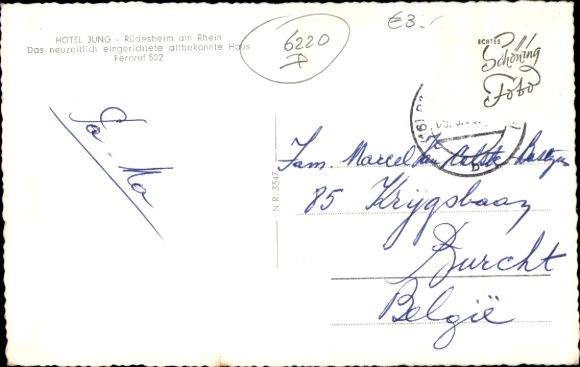 HOTEL JUNG - Rüdesheim am Rhein
Das neuzeitlich eingerichtete altbekannte Haus
Fernruf 502
6220
€3.-
ECHTES
Schöning
Foto
N R. 3347
Fam. Marcel Van
85 Krijgsbaan
Burcht
België